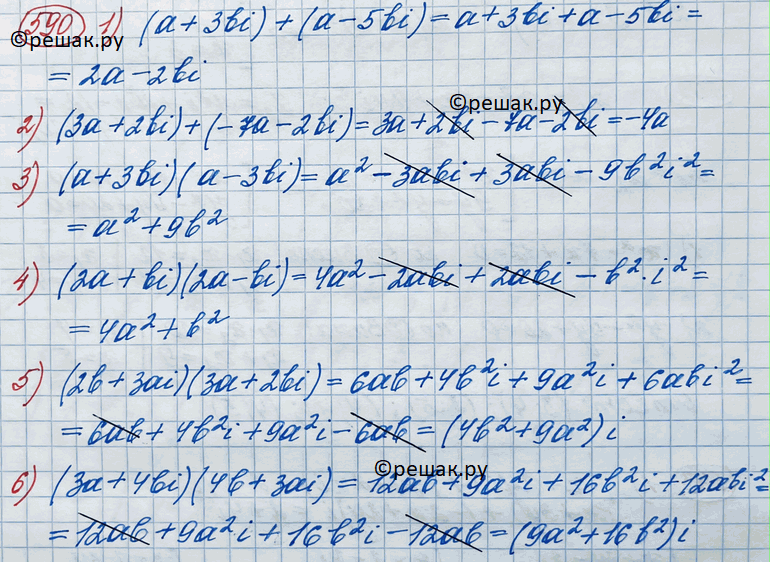 590 1) (a + 3bi) + (a - 5bi) = a + 3bi + a - 5bi =
©решак.ру
= 2a - 2bi
©решак.ру
2) (3a + 2bi) + (-7a - 2bi) = 3a + 2bi - 7a - 2bi = -4a
3) (a + 3bi)(a - 3bi) = a² - 3abi + 3abi - 9b²i² =
= a² + 9b²
4) (2a + bi)(2a - bi) = 4a² - 2abi + 2abi - b²·i² =
= 4a² + b²
5) (2b + 3ai)(3a + 2bi) = 6ab + 4b²i + 9a²i + 6abi² =
= 6ab + 4b²i + 9a²i - 6ab = (4b² + 9a²)i
©решак.ру
6) (3a + 4bi)(4b + 3ai) = 12ab + 9a²i + 16b²i + 12abi² =
= 12ab + 9a²i + 16b²i - 12ab = (9a² + 16b²)i